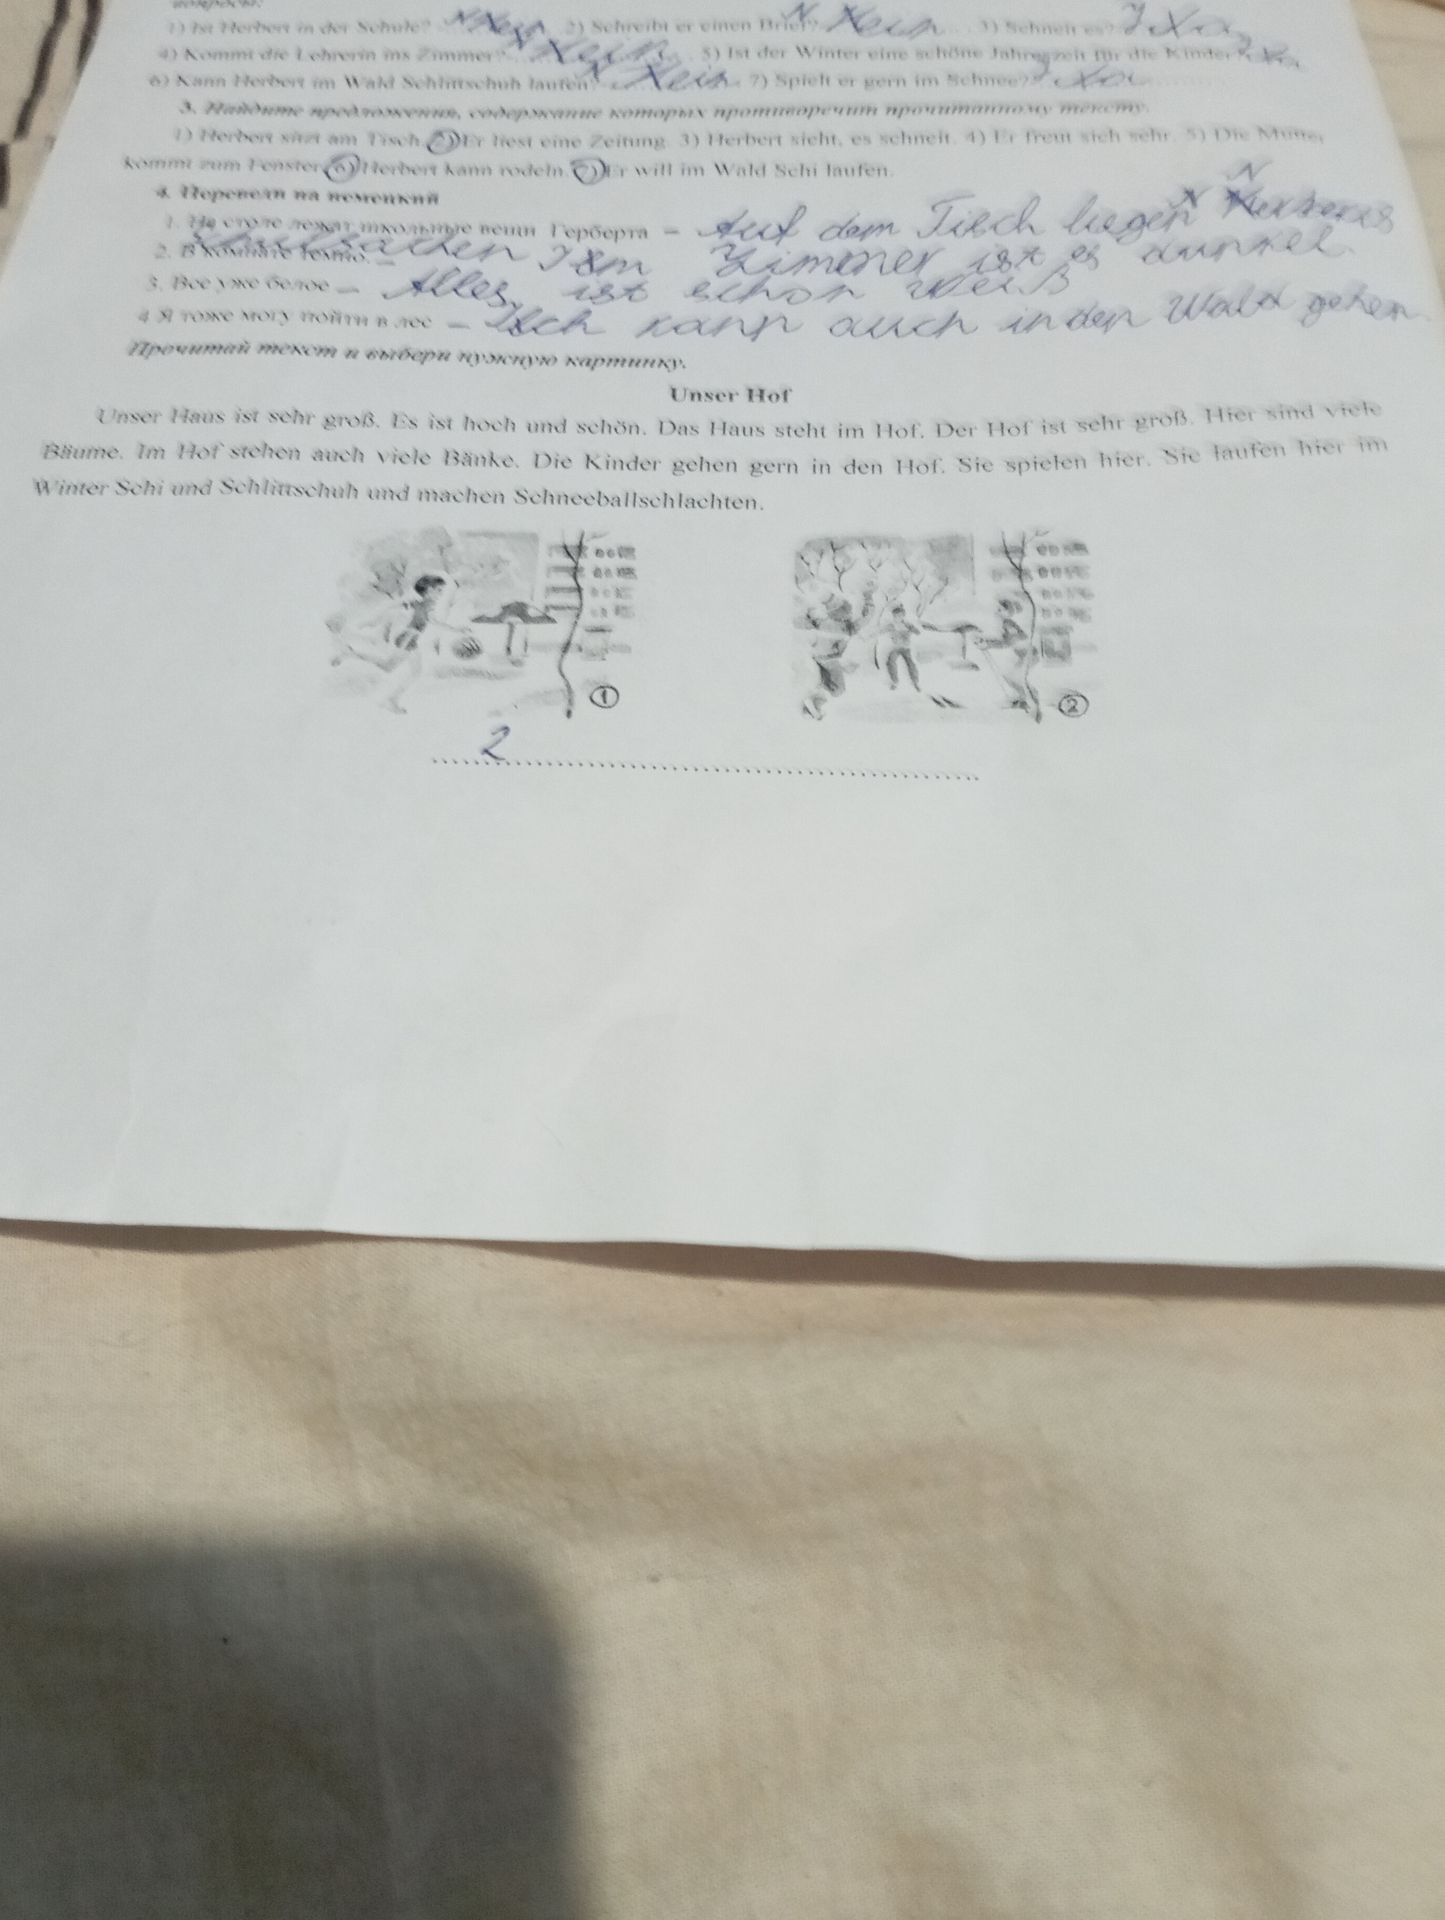 вопросы:
1) Ist Herbert in der Schule? Nein 2) Schreibt er einen Brief? Nein 3) Schneit es? Ja
4) Kommt die Lehrerin ins Zimmer? Nein 5) Ist der Winter eine schöne Jahreszeit für die Kinder? Ja
6) Kann Herbert im Wald Schlittschuh laufen? Nein 7) Spielt er gern im Schnee? Ja
3. Найдите предложения, содержание которых противоречит прочитанному тексту.
1) Herbert sitzt am Tisch. 2) Er liest eine Zeitung. 3) Herbert sieht, es schneit. 4) Er freut sich sehr. 5) Die Mutter
kommt zum Fenster. 6) Herbert kann rodeln. 7) Er will im Wald Schi laufen.
4. Переведи на немецкий
1. На столе лежат школьные вещи Герберта – Auf dem Tisch liegen
2. В комнате темно. – Im Zimmer ist es dunkel.
3. Все уже белое – Alles ist schon weiß
4 Я тоже могу пойти в лес – Ich kann auch in den Wald gehen.
Прочитай текст и выбери нужную картинку.
Unser Hof
Unser Haus ist sehr groß. Es ist hoch und schön. Das Haus steht im Hof. Der Hof ist sehr groß. Hier sind viele
Bäume. Im Hof stehen auch viele Bänke. Die Kinder gehen gern in den Hof. Sie spielen hier. Sie laufen hier im
Winter Schi und Schlittschuh und machen Schneeballschlachten.
1
2
2